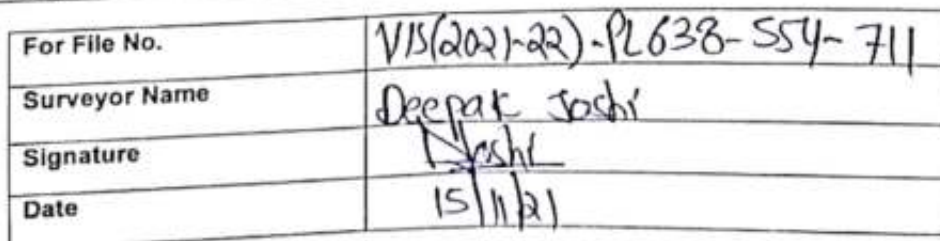 For File No. VIS(2021-22)-PL638-554-711
Surveyor Name Deepak Joshi
Signature Joshi
Date 15/11/21